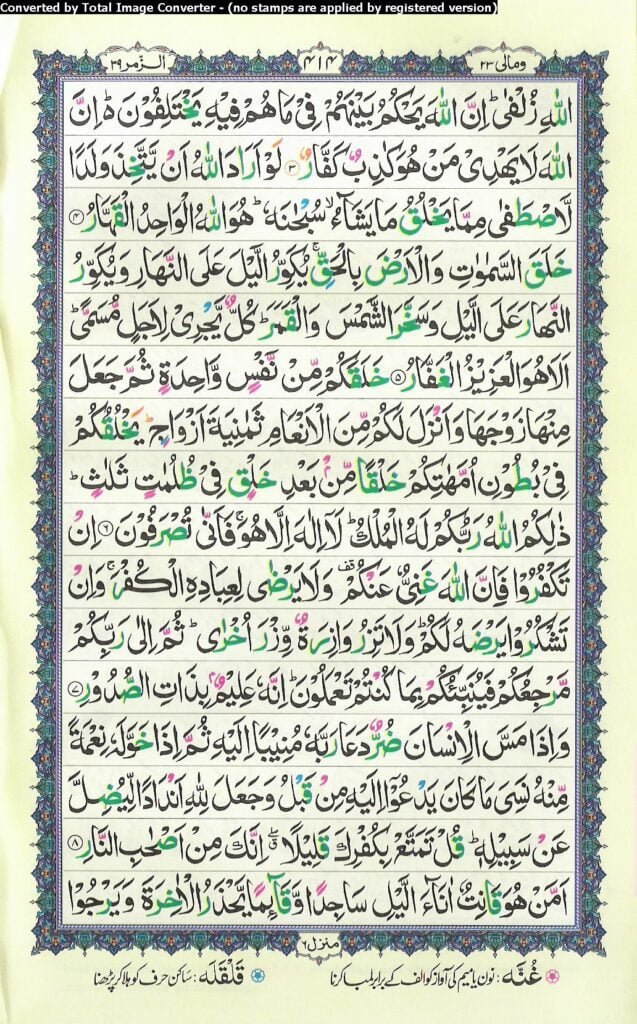 Converted by Total Image Converter - (no stamps are applied by registered version)
ومالی ٢٣
٤١٤
الزمر ٣٩
اللّٰهِ زُلْفٰى ؕ اِنَّ اللّٰهَ يَحْكُمُ بَيْنَهُمْ فِىْ مَا هُمْ فِيْهِ يَخْتَلِفُوْنَ ؕ۬ اِنَّ
اللّٰهَ لَا يَهْدِىْ مَنْ هُوَ كٰذِبٌ كَفَّارٌ ﴿٣﴾ لَوْ اَرَادَ اللّٰهُ اَنْ يَّتَّخِذَ وَلَدًا
لَّاصْطَفٰى مِمَّا يَخْلُقُ مَا يَشَآءُ ۙ سُبْحٰنَهٗ ؕ هُوَ اللّٰهُ الْوَاحِدُ الْقَهَّارُ ﴿٤﴾
خَلَقَ السَّمٰوٰتِ وَالْاَرْضَ بِالْحَقِّ ۚ يُكَوِّرُ الَّيْلَ عَلَى النَّهَارِ وَيُكَوِّرُ
النَّهَارَ عَلَى الَّيْلِ وَسَخَّرَ الشَّمْسَ وَالْقَمَرَ ؕ كُلٌّ يَّجْرِىْ لِاَجَلٍ مُّسَمًّى ؕ
اَلَا هُوَ الْعَزِيْزُ الْغَفَّارُ ﴿٥﴾ خَلَقَكُمْ مِّنْ نَّفْسٍ وَّاحِدَةٍ ثُمَّ جَعَلَ
مِنْهَا زَوْجَهَا وَاَنْزَلَ لَكُمْ مِّنَ الْاَنْعَامِ ثَمٰنِيَةَ اَزْوَاجٍ ؕ يَخْلُقُكُمْ
فِىْ بُطُوْنِ اُمَّهٰتِكُمْ خَلْقًا مِّنْۢ بَعْدِ خَلْقٍ فِىْ ظُلُمٰتٍ ثَلٰثٍ ؕ
ذٰلِكُمُ اللّٰهُ رَبُّكُمْ لَهُ الْمُلْكُ ؕ لَآ اِلٰهَ اِلَّا هُوَ ۚ فَاَنّٰى تُصْرَفُوْنَ ﴿٦﴾ اِنْ
تَكْفُرُوْا فَاِنَّ اللّٰهَ غَنِىٌّ عَنْكُمْ ۟ وَلَا يَرْضٰى لِعِبَادِهِ الْكُفْرَ ۚ وَاِنْ
تَشْكُرُوْا يَرْضَهُ لَكُمْ ؕ وَلَا تَزِرُ وَازِرَةٌ وِّزْرَ اُخْرٰى ؕ ثُمَّ اِلٰى رَبِّكُمْ
مَّرْجِعُكُمْ فَيُنَبِّئُكُمْ بِمَا كُنْتُمْ تَعْمَلُوْنَ ؕ اِنَّهٗ عَلِيْمٌۢ بِذَاتِ الصُّدُوْرِ ﴿٧﴾
وَاِذَا مَسَّ الْاِنْسَانَ ضُرٌّ دَعَا رَبَّهٗ مُنِيْبًا اِلَيْهِ ثُمَّ اِذَا خَوَّلَهٗ نِعْمَةً
مِّنْهُ نَسِىَ مَا كَانَ يَدْعُوْۤا اِلَيْهِ مِنْ قَبْلُ وَجَعَلَ لِلّٰهِ اَنْدَادًا لِّيُضِلَّ
عَنْ سَبِيْلِهٖ ؕ قُلْ تَمَتَّعْ بِكُفْرِكَ قَلِيْلًا ۖ اِنَّكَ مِنْ اَصْحٰبِ النَّارِ ﴿٨﴾
اَمَّنْ هُوَ قَانِتٌ اٰنَآءَ الَّيْلِ سَاجِدًا وَّقَآئِمًا يَّحْذَرُ الْاٰخِرَةَ وَيَرْجُوْا
منزل ٦
غُنَّه : نون یا میم کی آواز کو الف کے برابر لمبا کرنا
قَلْقَلَه : ساکن حرف کو ہلا کر پڑھنا